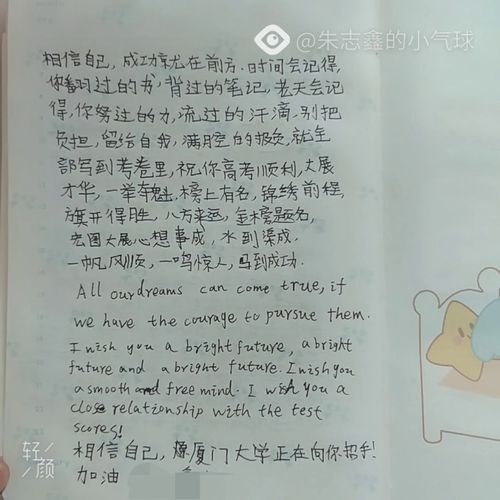 @朱志鑫的小气球
相信自己，成功就在前方.时间会记得，
你翻过的书，背过的笔记，老天会记
得，你努过的力，流过的汗滴，别把
负担，留给自我，满腔的抱负，就全
部写到考卷里，祝你高考顺利，大展
才华，一举夺魁，榜上有名，锦绣前程，
旗开得胜，八方来运，金榜题名，
宏图大展心想事成，水到渠成，
一帆风顺，一鸣惊人，马到成功.
All our dreams can come true, if
we have the courage to pursue them.
I wish you a bright future, a bright
future and a bright future. I wish you
a smooth and free mind. I wish you a
close relationship with the test
scores!
相信自己，厦门大学正在向你招手!
加油
轻
颜